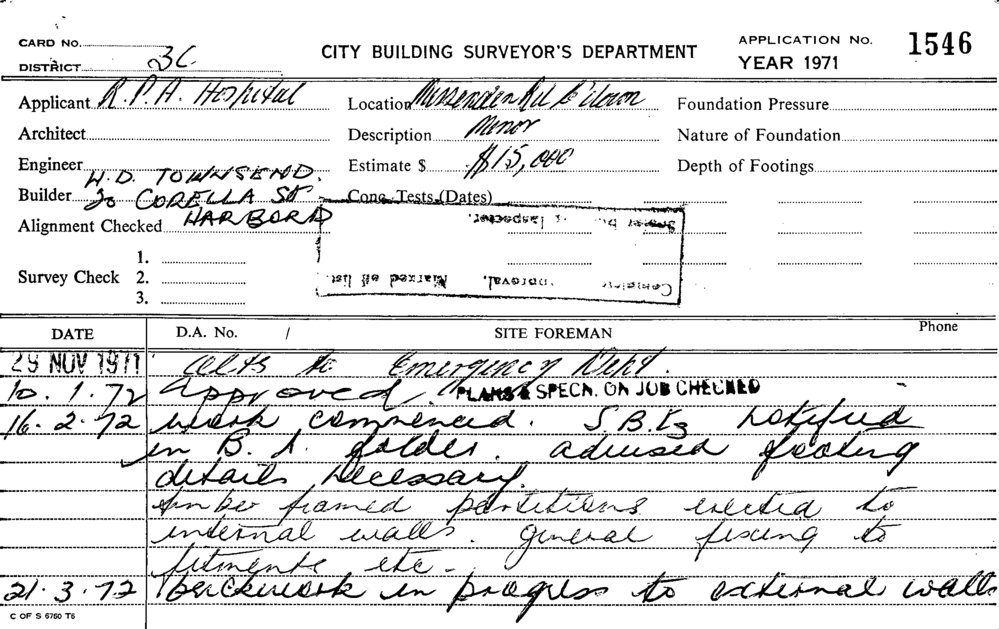 CARD No.
DISTRICT 3C
CITY BUILDING SURVEYOR'S DEPARTMENT
APPLICATION No. 1546
YEAR 1971
Applicant R.P.A. Hospital
Location Missenden Rd C'down
Foundation Pressure
Architect
Description Minor
Nature of Foundation
Engineer
Estimate $ $15,000
Depth of Footings
H.D. TOWNSEND.
Builder 20 CORELLA ST
HARBORD
Conc. Tests (Dates)
Alignment Checked
Inspector.
Survey Check
1.
2.
3.
Complete Approval. Marked off list.
DATE
D.A. No. /
SITE FOREMAN
Phone
29 NOV 1971 Alts to Emergency Dept.
10.1.72 Approved. PLANS & SPECN. ON JOB CHECKED
16.2.72 work commenced. S.B.I's notified
in B.A. folder. advised footing
details necessary.
timber framed partitions erected to
internal walls. general fixing to
fitments etc -
21.3.72 brickwork in progress to external walls
C OF S 6760 T6